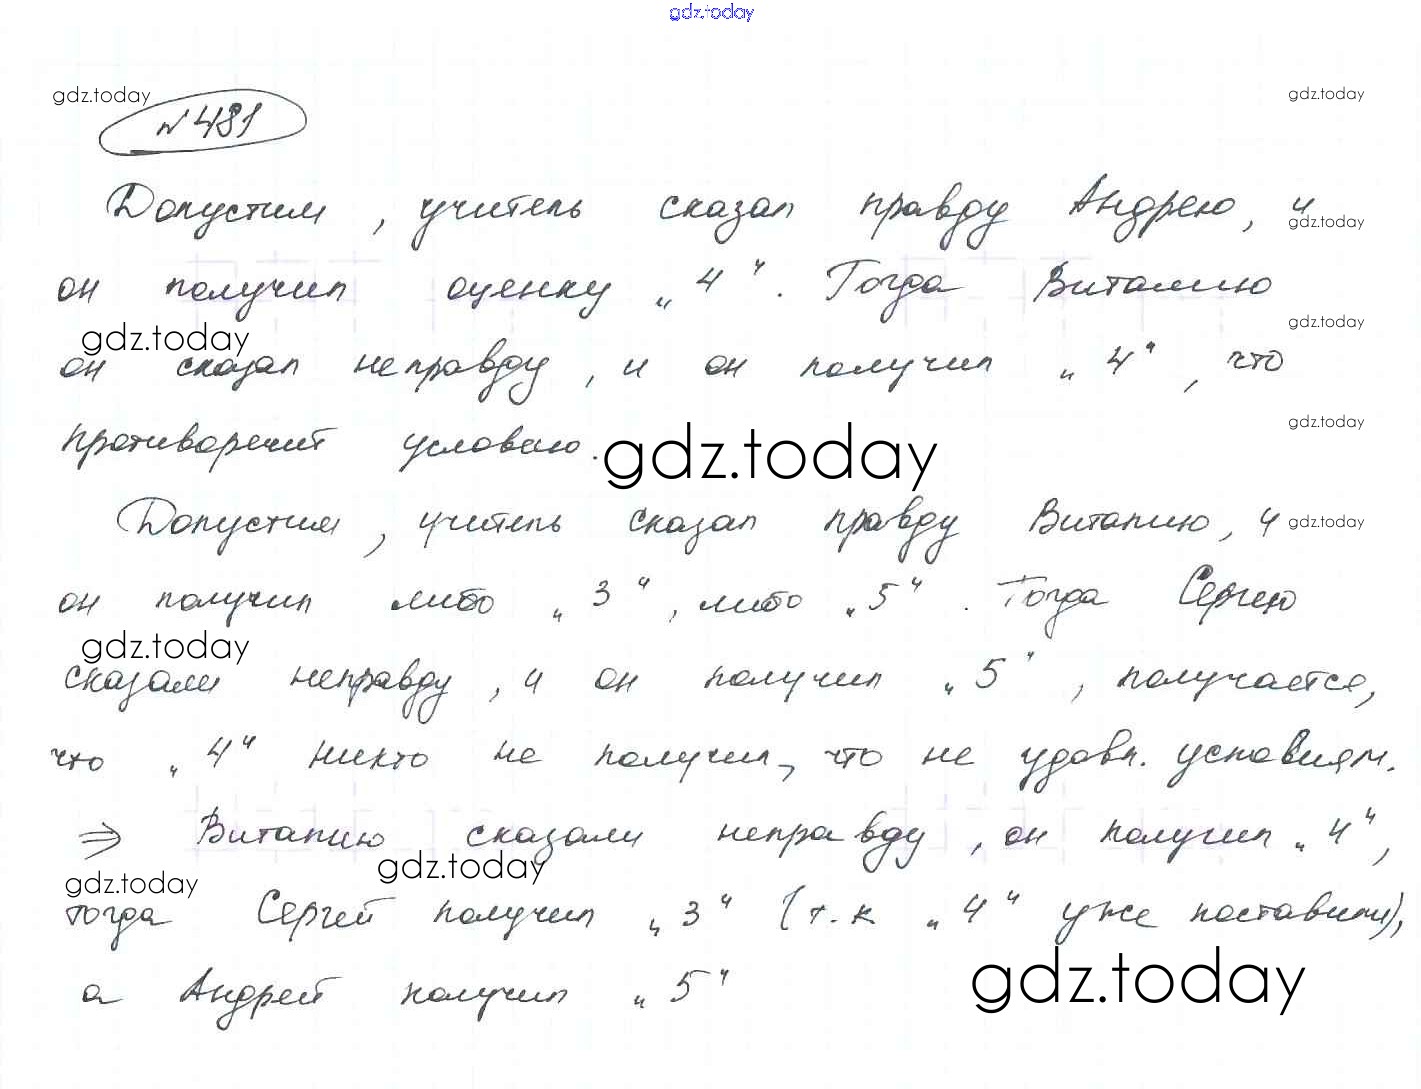 gdz.today
gdz.today
gdz.today
№ 481
Допустим, учитель сказал правду Андрею, и
gdz.today
он получил оценку „4“. Тогда Виталию
gdz.today
gdz.today
он сказал неправду, и он получил „4“, что
gdz.today
противоречит условию.
gdz.today
Допустим, учитель сказал правду Виталию, и
gdz.today
он получил либо „3“, либо „5“. Тогда Сергею
gdz.today
сказали неправду, и он получил „5“, получается,
что „4“ никто не получил, что не удовл. условиям.
⇒ Виталию сказали неправду, он получил „4“,
gdz.today
gdz.today
тогда Сергей получил „3“ (т.к „4“ уже поставили),
gdz.today
а Андрей получил „5“